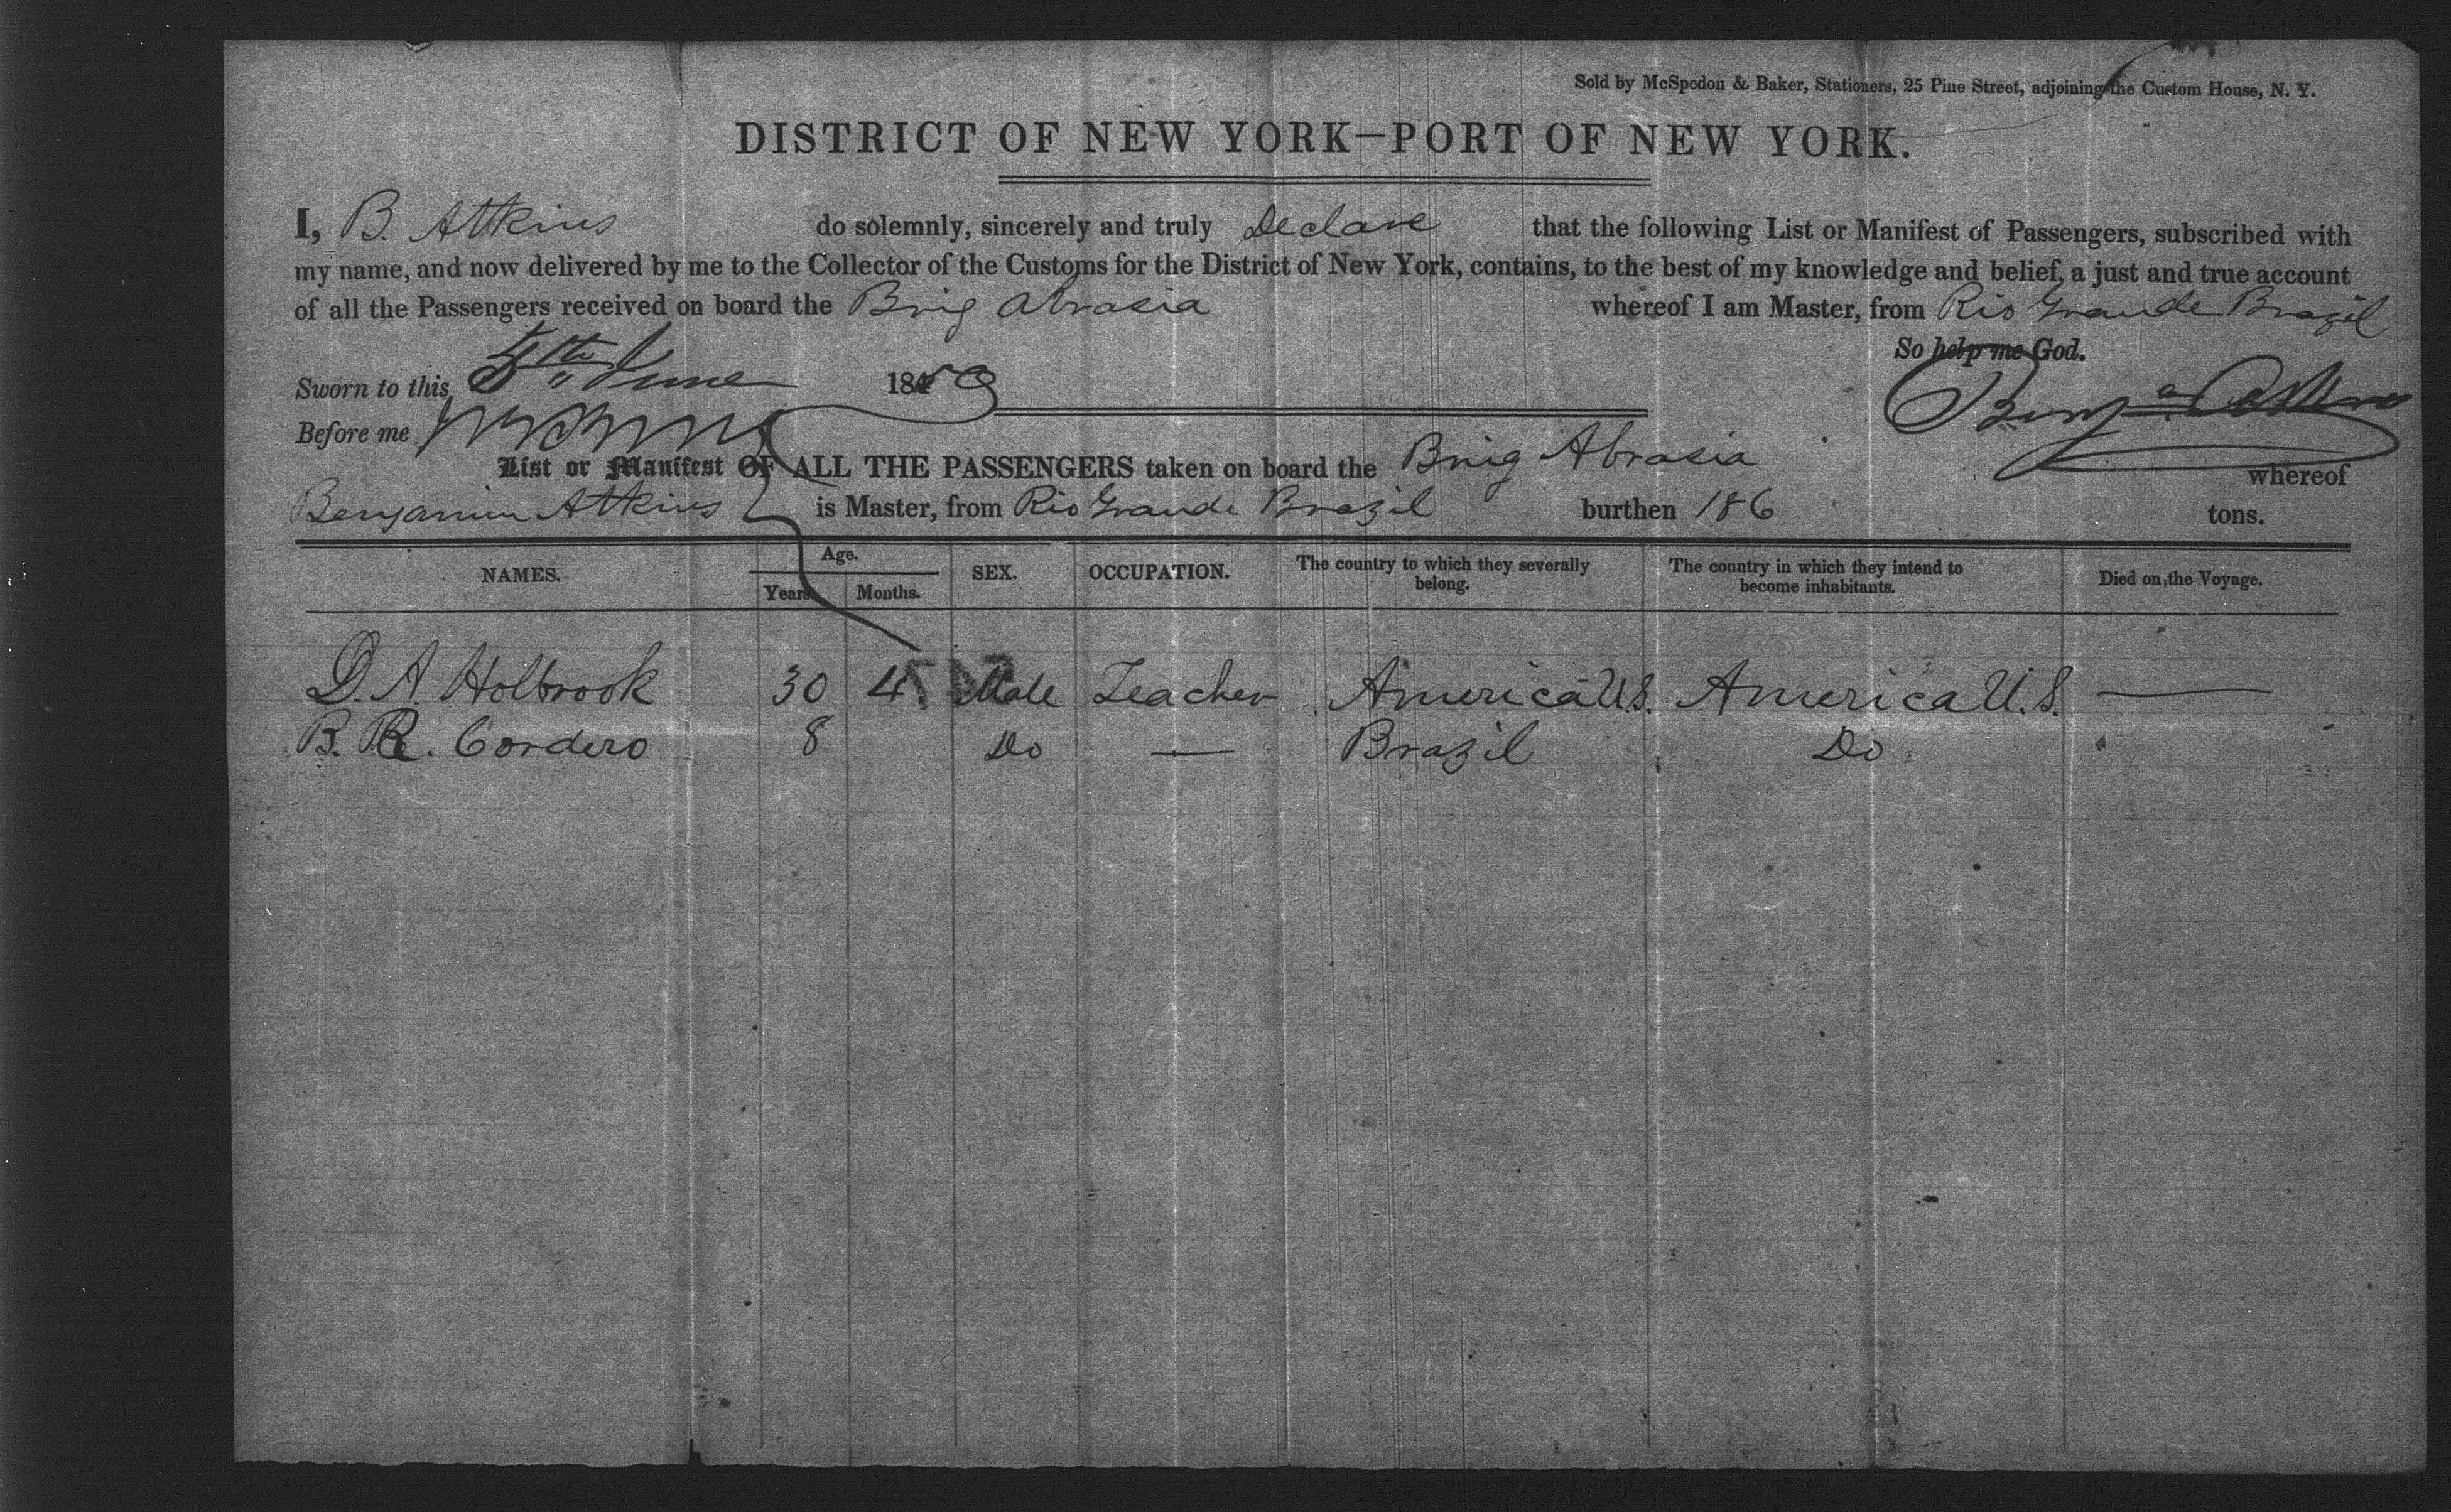 Sold by McSpedon & Baker, Stationers, 25 Pine Street, adjoining the Custom House, N. Y.
DISTRICT OF NEW YORK—PORT OF NEW YORK.
I, B. Atkins do solemnly, sincerely and truly Declare that the following List or Manifest of Passengers, subscribed with
my name, and now delivered by me to the Collector of the Customs for the District of New York, contains, to the best of my knowledge and belief, a just and true account
of all the Passengers received on board the Brig Abrasia whereof I am Master, from Rio Grande Brazil
So help me God.
Sworn to this 5th June 1850
Before me
Benja Atkins
List or Manifest OF ALL THE PASSENGERS taken on board the Brig Abrasia whereof
Benjamin Atkins is Master, from Rio Grande Brazil burthen 186 tons.
NAMES. Age. Years. Months. SEX. OCCUPATION. The country to which they severally belong. The country in which they intend to become inhabitants. Died on the Voyage.
D. A. Holbrook 30 4 Male Teacher America U.S. America U.S. —
B. R. Cordero 8 Do — Brazil Do "